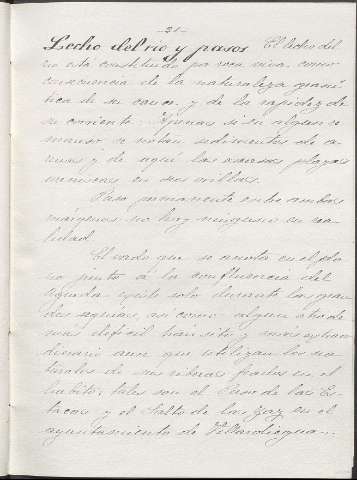 -21-
Lecho del rio y pasos El lecho del
rio esta constituido por roca viva, como
consecuencia de la naturaleza grani-
tica de su cauce y de la rapidez de
su corriente. Apenas si en algun re-
manso se notan sedimentos de a-
renas y de aqui las escasas playas
arenosas en sus orillas.
Paso permanente entre ambas
márgenes no hay ninguno en rea-
lidad.
El vado que se anota en el pla-
no junto á la confluencia del
Agueda existe solo durante las gran-
des sequias, asi como algun otro de
más dificil tránsito y más extraor-
dinario aun que utilizan los na-
turales de sus riberas fiados en el
habito; tales son el Paso de las Es-
tacas y el Salto de la Zaz en el
ayuntamiento de